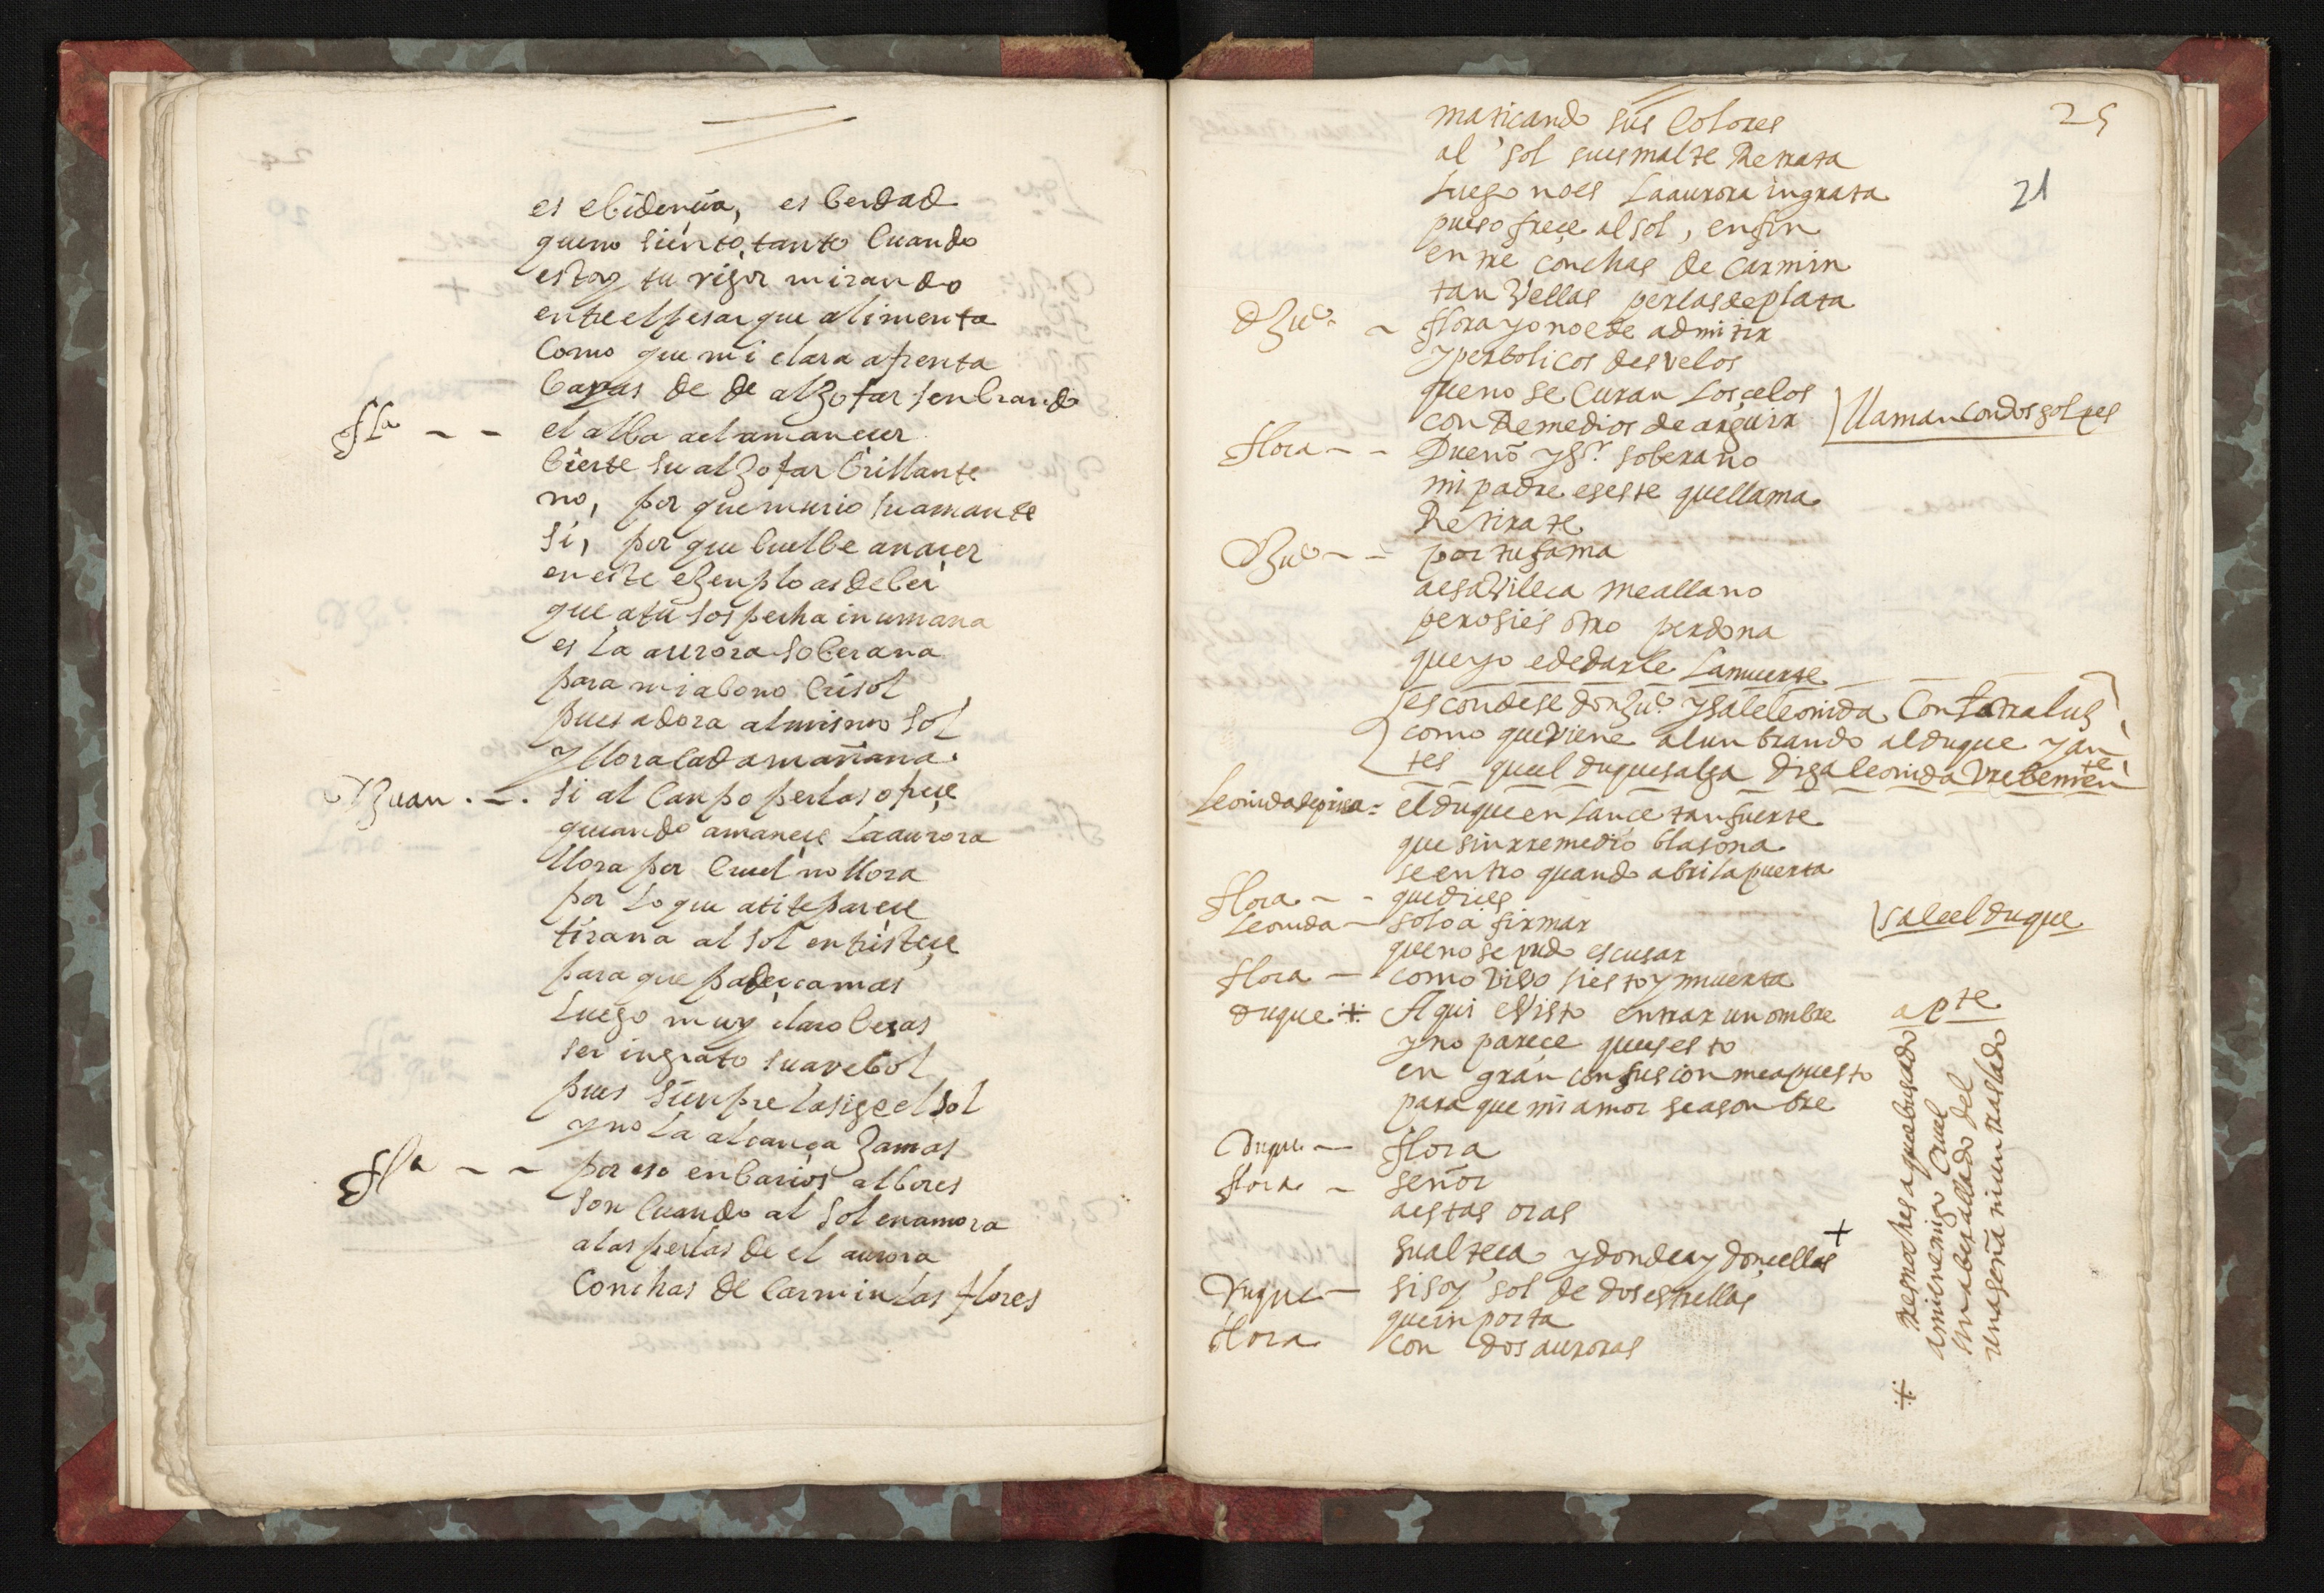 es ebidençia, es berdad
que no siento, tanto cuando
estoy tu rigor mirando
entre el pesar que alimenta
Como que mi clara afrenta
bayas de de alJofar senbrando
fla — el alba al amaneçer
bierte su alJofar brillante
no, por que murio su amante
si, por que buelbe anaçer
en este eJenplo as de ber
que atu sospecha inumana
es La aurora soberana
para mi abono crisol
pues adora al mismo sol
y llora cada mañana.
DJuan. — Si al Canpo perlas ofreçe
quando amaneçe La aurora
llora por cruel no llora
por Lo que ati te pareçe
tirana al sol entristeçe
para que padezca mas
Luego muy claro beras
ser ingrato su arebol
pues sienpre la sige el sol
y no La alcança Jamas
fla — por eso en barios albores
son Cuando al sol enamora
a las perlas de el aurora
Conchas de Carmin Las flores
25
21
matiçando sus Colores
al sol su esmalte Retrata
Luego no es La aurora ingrata
pues ofreçe al sol, en fin
entre conchas de Carmin
tan Vellas perlas de plata
DJuo — flora yo no e de admitir
yperbolicos desvelos
que no se Curan Los çelos
con Remedios de arguir
llaman con dos golpes
flora — Dueño y Sr. soberano
mi padre es este que llama
Retirate
DJuo — por tu fama
a esa Vileça me allano
pero si es otro perdona
que yo e de darle La muerte
escondese don Juo y sale leonida Con la otra luz
como que viene alunbrando al duque y an
tes que el duque salga diga leonida vrebemen
te
leonida de prisa = el duque en Lançe tan fuerte
que sin rremedio blasona
se entro quando abri la puerta
flora — que diçes
Leonida — solo afirmar
que no se pudo escusar
sale el duque
flora — como vivo si estoy muerta
duque ⁜ Aqui e Visto entrar un ombre
y no pareçe que es esto
en gran confusion me a puesto
para que mi amor se asonbre
apte
Duque — flora
flora — señor
a estas oras
su alteça y donde ay donçellas +
Duque — si soy sol de dos estrellas
que inporta
flora con dos auroras
⁜ tres noches a que e buscado
a mi enemigo cruel
sin aber allado del
una seña ni un traslado